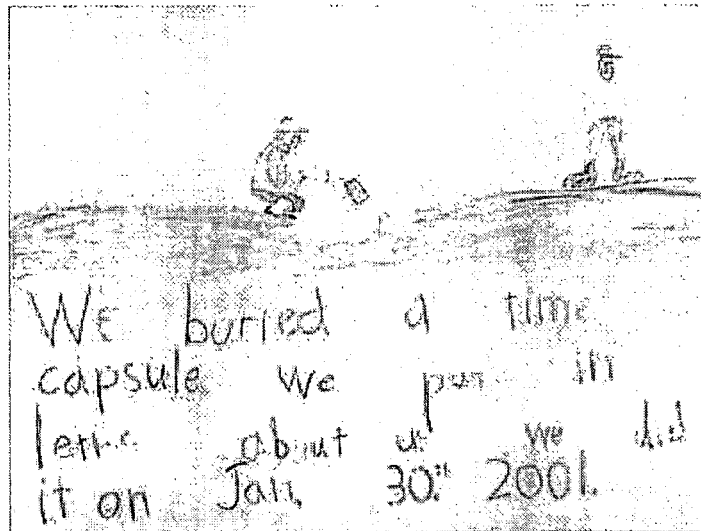 We buried a time
capsule we put in
about us we did
it on Jan. 30th 2001.